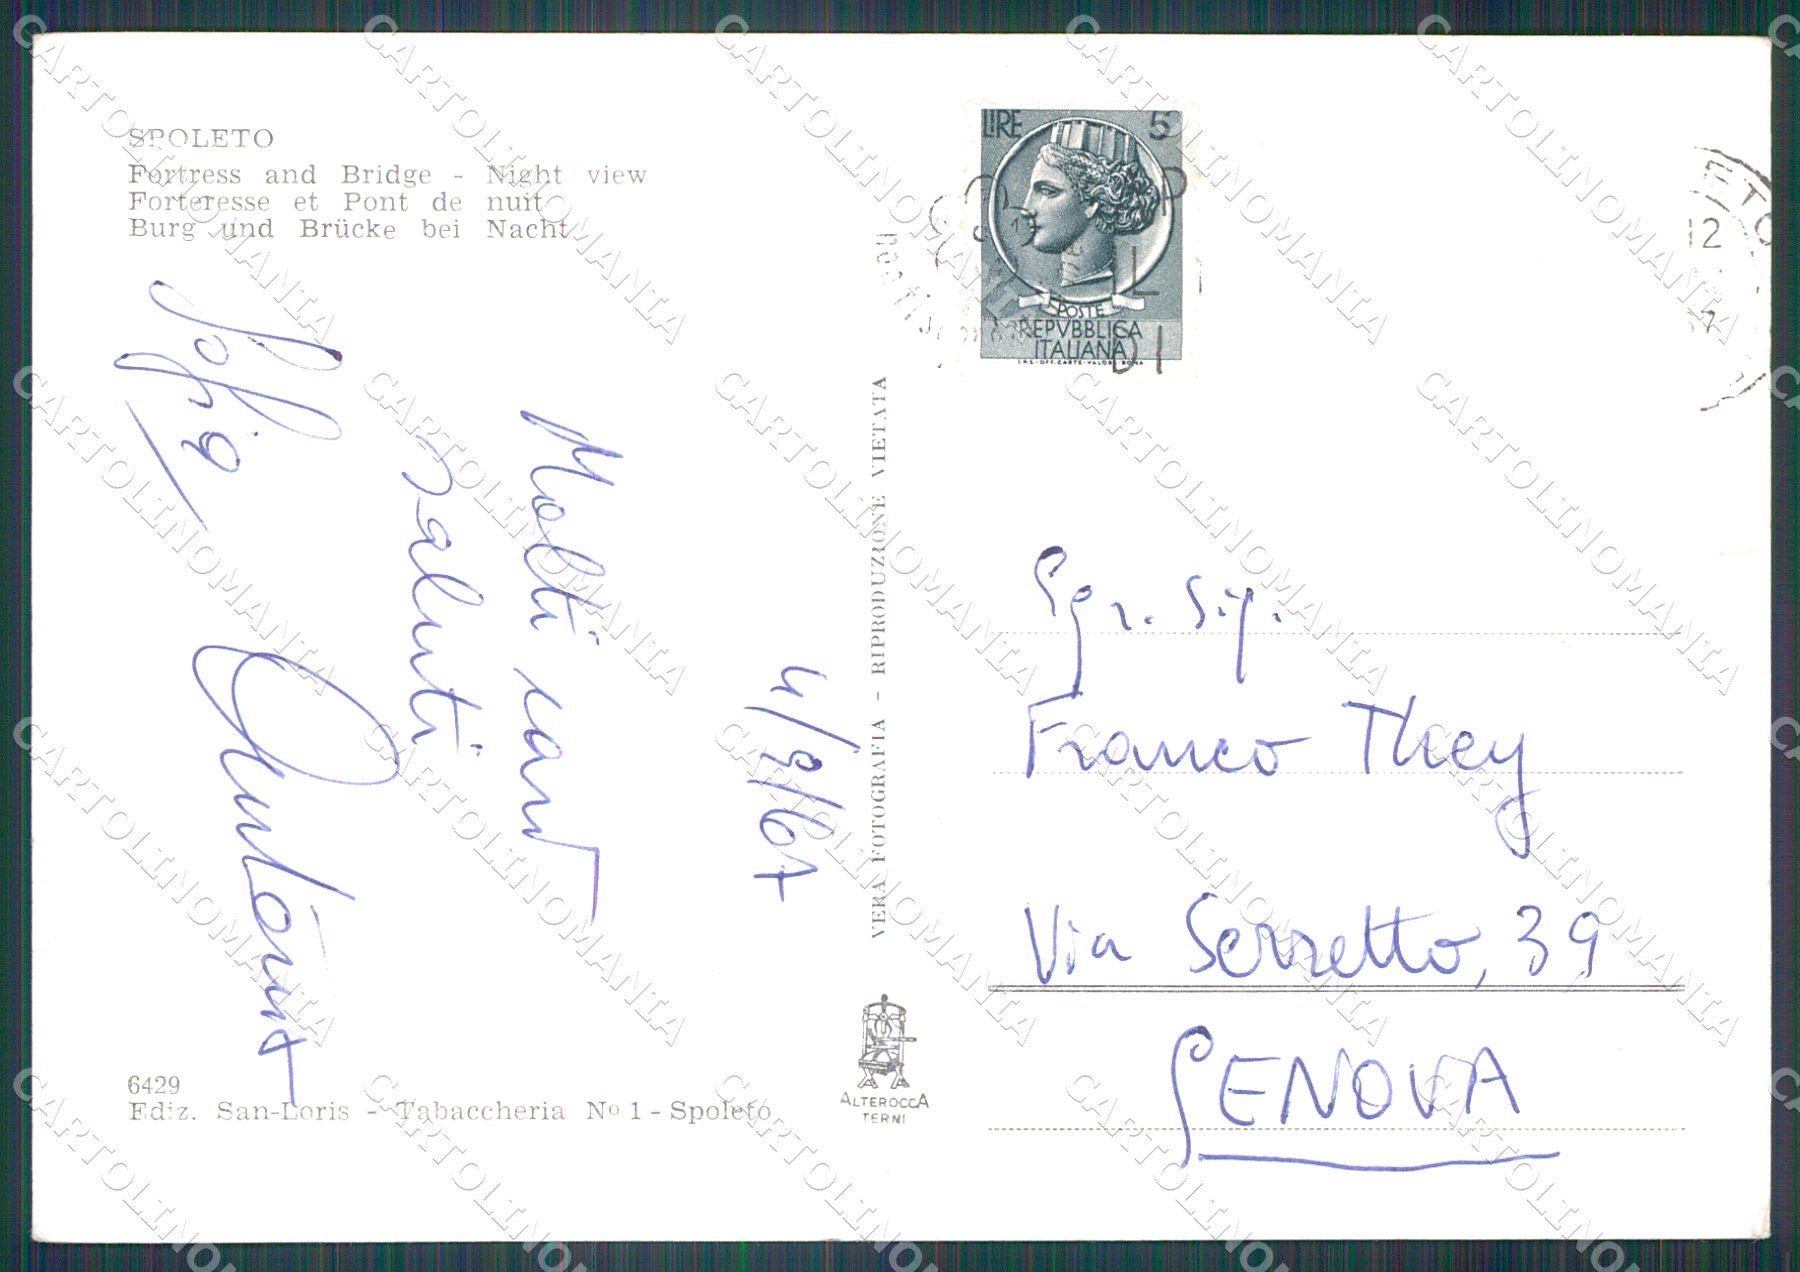 SPOLETO
Fortress and Bridge - Night view
Forteresse et Pont de nuit
Burg und Brücke bei Nacht
4/9/67
Molti cari
saluti
Antonia
Sofia
6429
Ediz. San-Loris - Tabaccheria Nº 1 - Spoleto
VERA FOTOGRAFIA - RIPRODUZIONE VIETATA
ALTEROCCA
TERNI
LIRE 5
POSTE
REPVBBLICA
ITALIANA
I.P.S.-OFF. CARTE-VALORI-ROMA
ETO
12
Egr. Sig.
Franco They
Via Serretto, 39
GENOVA
CARTOLINOMANIA